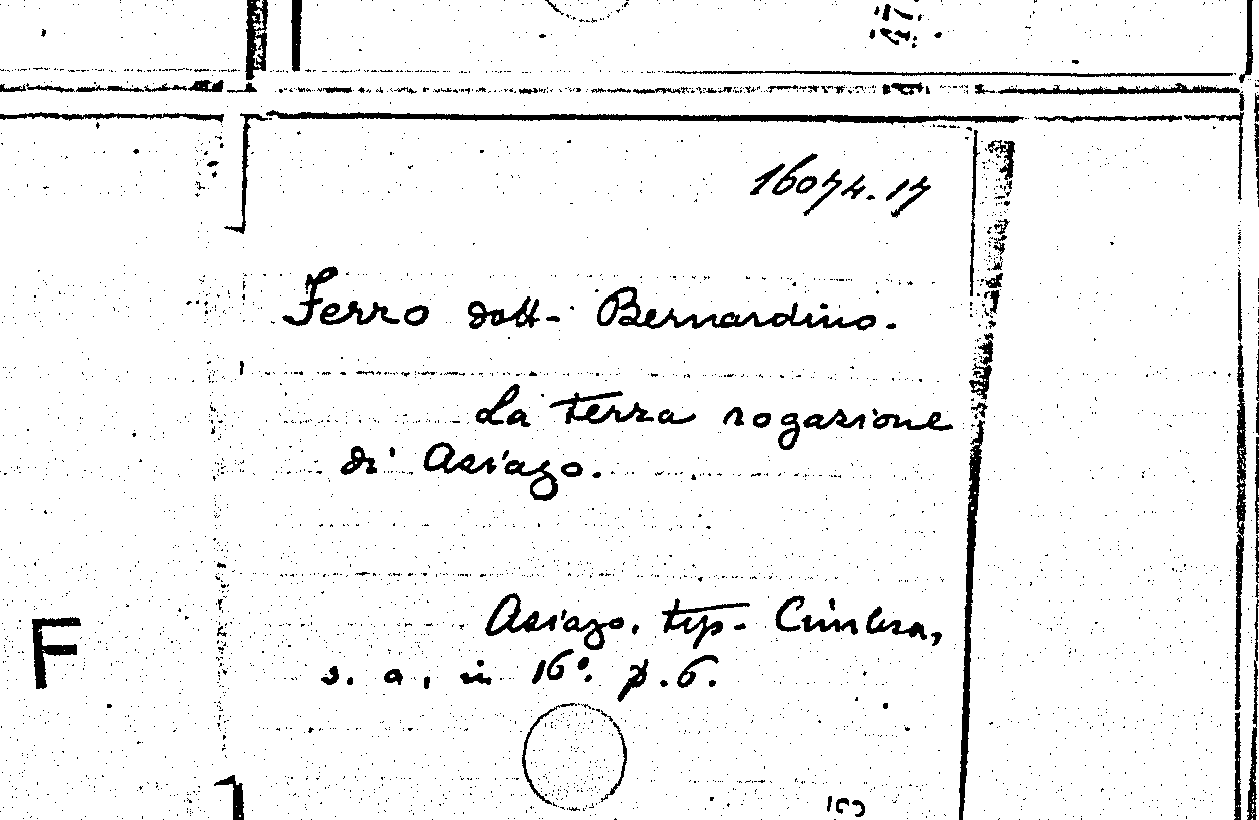 16074.17
Ferro dott. Bernardino.
La terza rogazione
di Asiago.
Asiago, tip. Cimbra,
F
s. a, in 16°. p.6.